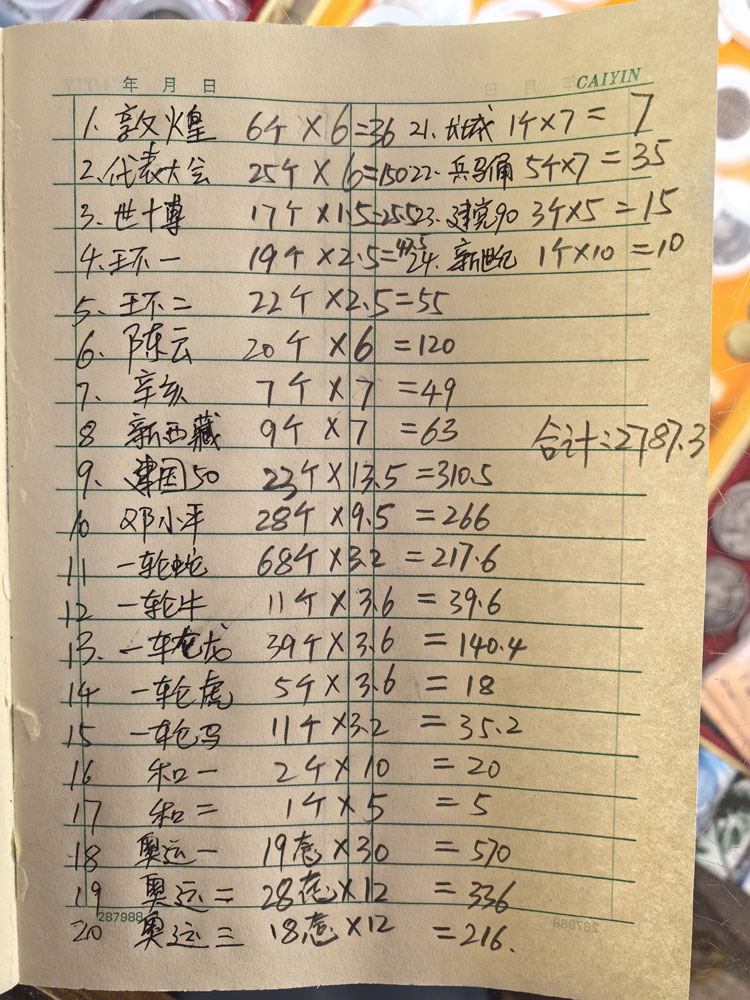 年 月 日 CAIYIN
1. 敦煌 6个×6=36 21. 长城 1个×7=7
2. 代表大会 25个×6=150 22. 兵马俑 5个×7=35
3. 世十博 17个×1.5=25.5 23. 建党90 3个×5=15
4. 环一 19个×2.5=47.5 24. 新世纪 1个×10=10
5. 环二 22个×2.5=55
6. 陈云 20个×6=120
7. 辛亥 7个×7=49
8 新西藏 9个×7=63
合计:2787.3
9. 建国50 23个×13.5=310.5
10 邓小平 28个×9.5=266
11 一轮蛇 68个×3.2=217.6
12 一轮牛 11个×3.6=39.6
13. 一轮龙 39个×3.6=140.4
14 一轮虎 5个×3.6=18
15 一轮马 11个×3.2=35.2
16 和一 2个×10=20
17 和二 1个×5=5
18 奥运一 19套×30=570
19 奥运二 28套×12=336
20 奥运三 18套×12=216.
287988